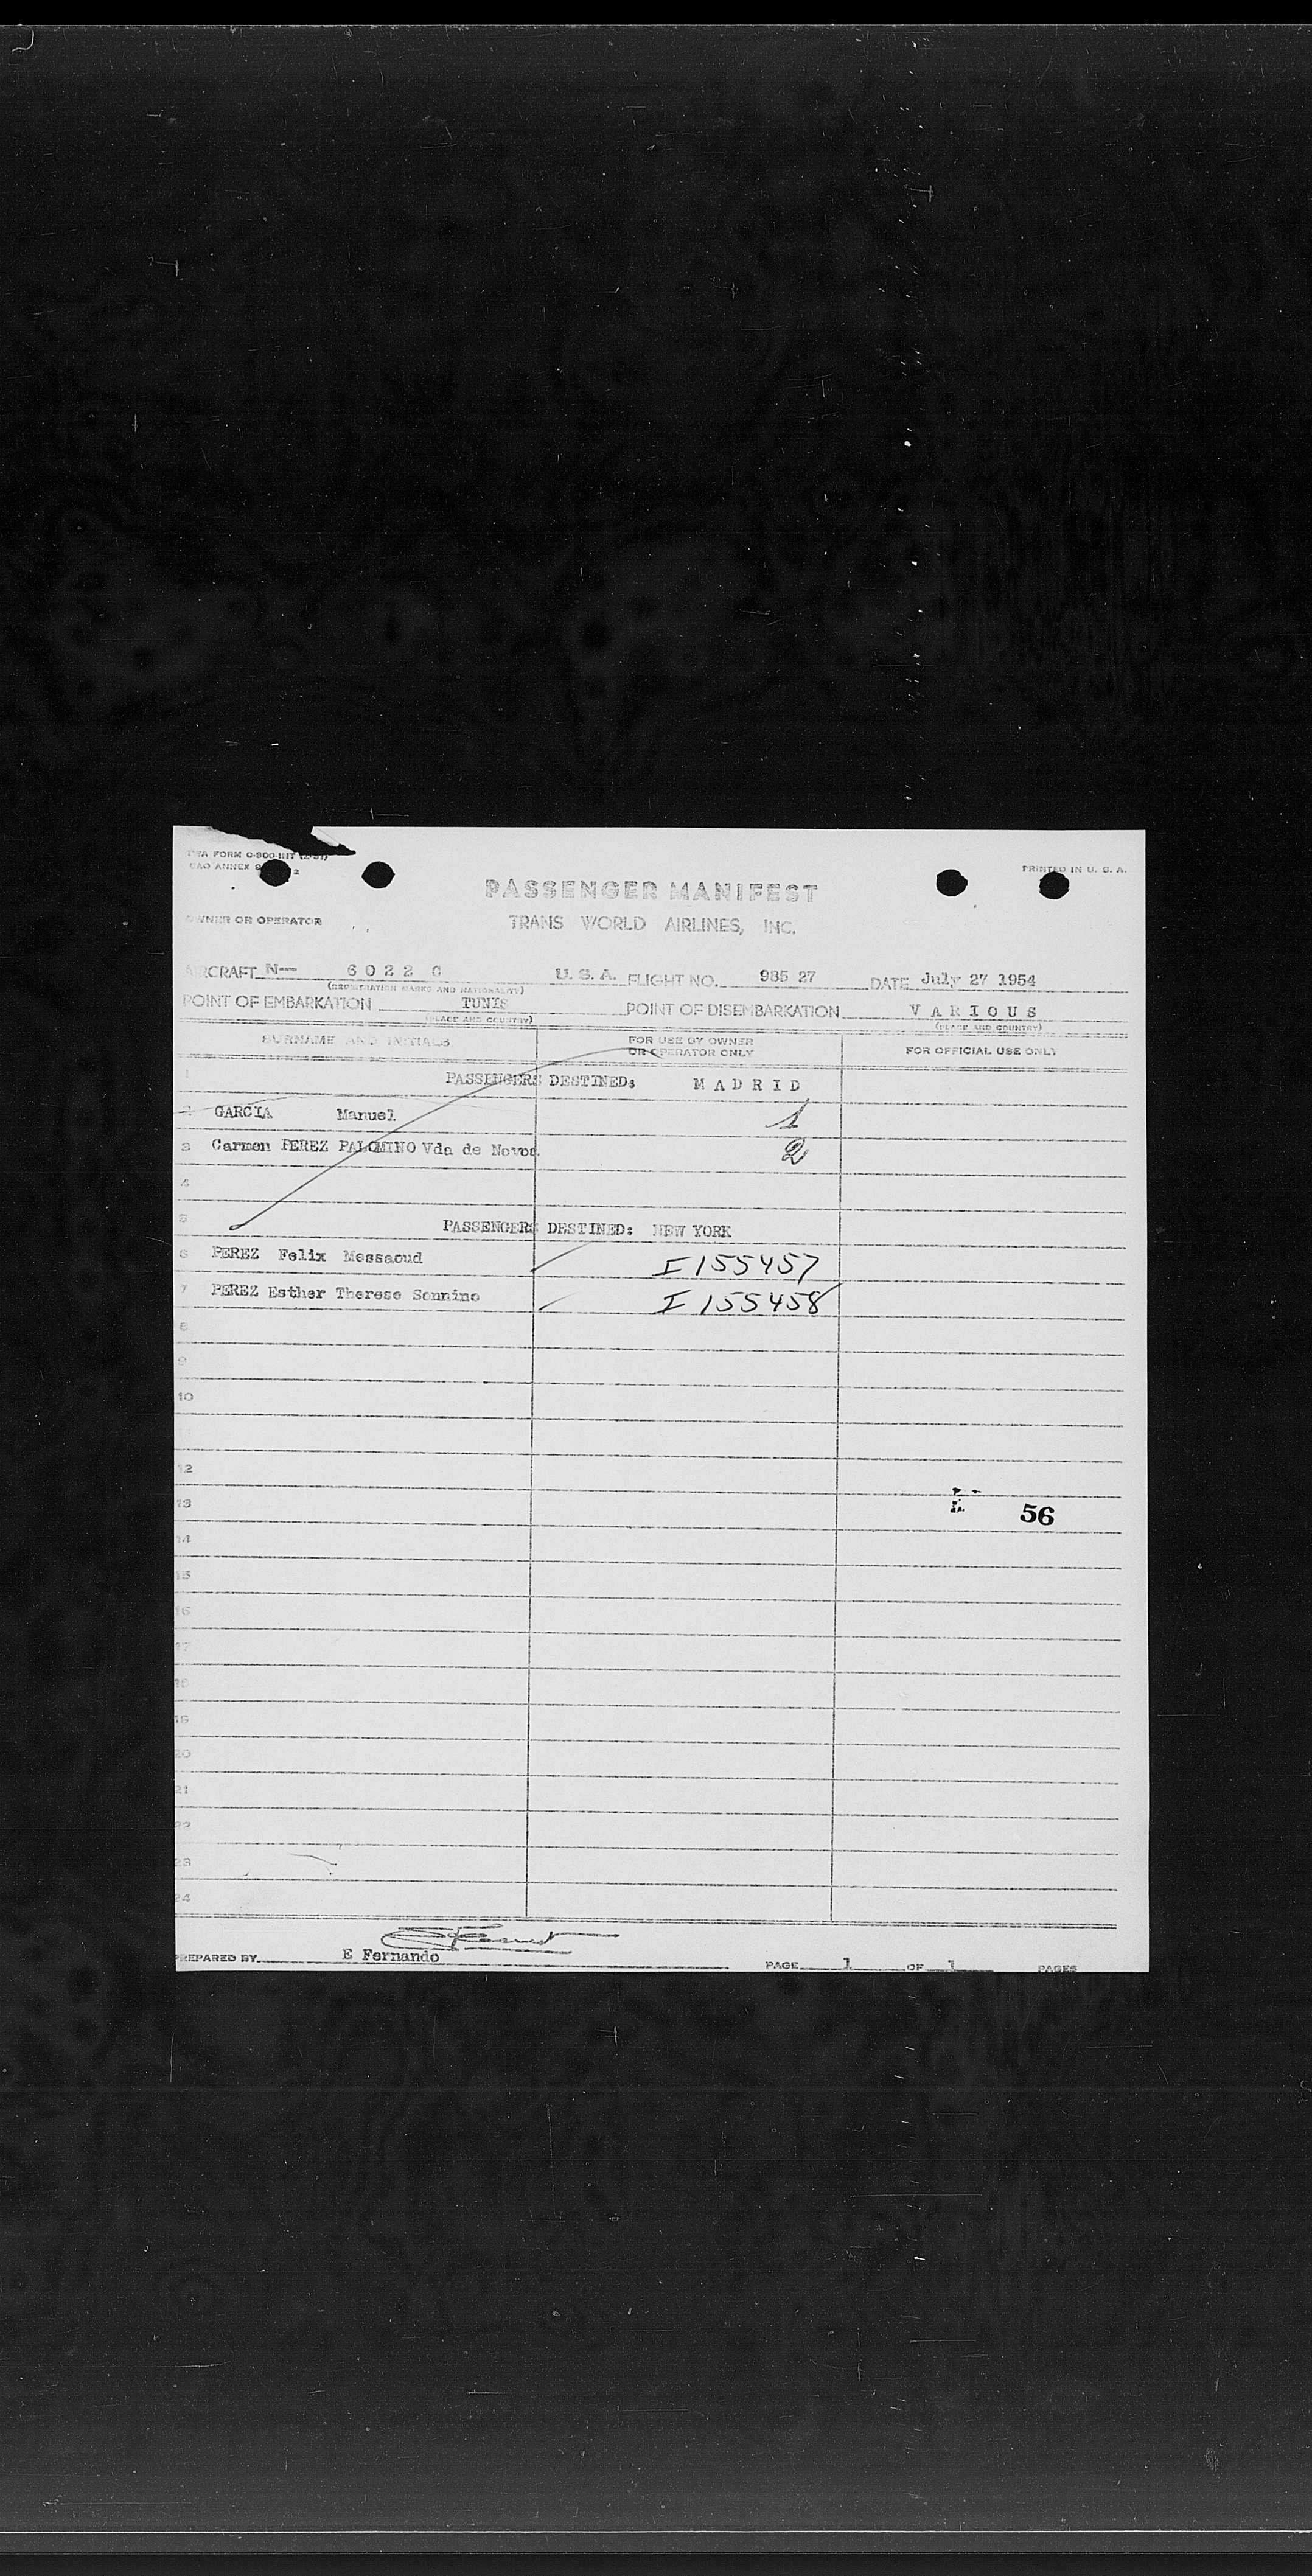 TWA FORM
PRINTED IN U. S. A.
PASSENGER MANIFEST
OWNER OR OPERATOR
TRANS WORLD AIRLINES, INC.
AIRCRAFT N-- 6 0 2 2 C U. S. A. FLIGHT NO. 985 27 DATE July 27 1954
(REGISTRATION MARKS AND NATIONALITY)
POINT OF EMBARKATION TUNIS POINT OF DISEMBARKATION V A R I O U S
(PLACE AND COUNTRY) (PLACE AND COUNTRY)
SURNAME AND INITIALS FOR USE BY OWNER OR OPERATOR ONLY FOR OFFICIAL USE ONLY
1 PASSENGERS DESTINED: M A D R I D
2 GARCIA Manuel 1
3 Carmen PEREZ PALOMINO Vda de 2
4
5 PASSENGERS DESTINED: NEW YORK
6 PEREZ Felix Messaoud I155457
7 PEREZ Esther Therese Sonnino I155458
8
9
10
12
13 56
14
15
16
17
18
19
20
21
22
23
24
PREPARED BY E Fernando PAGE 1 OF 1 PAGES